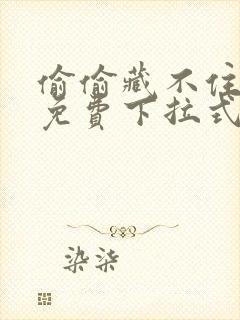 偷偷藏不住
免費下拉式
染柒